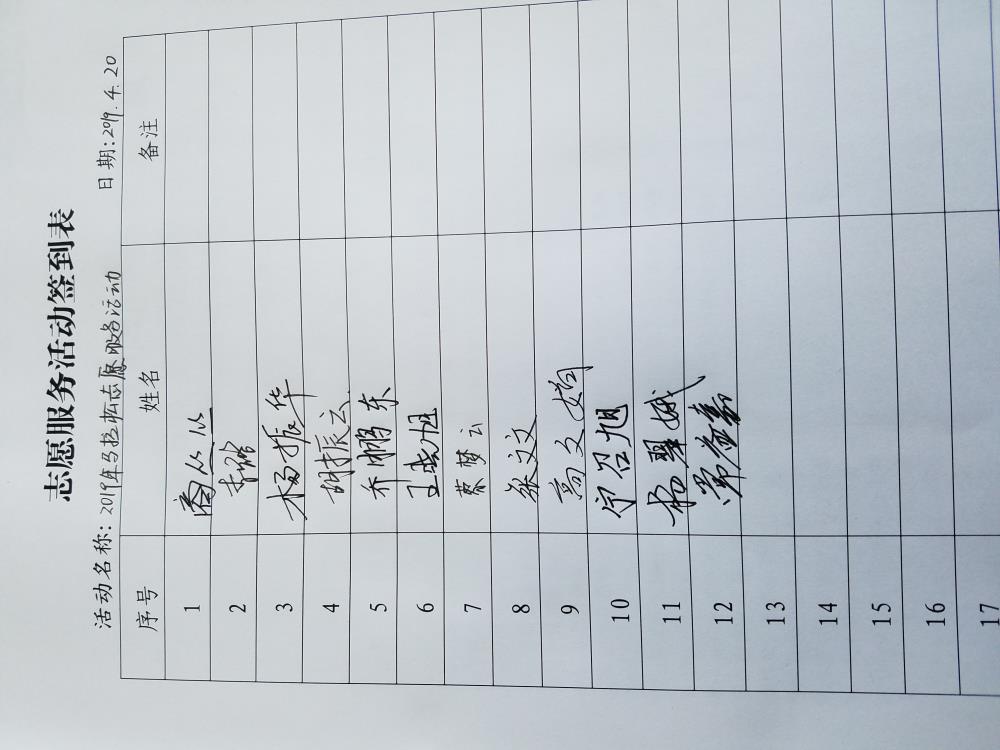 志愿服务活动签到表
活动名称：2019年马拉松志愿服务活动 日期：2019.4.20
序号 姓名 备注
1 商丛丛
2
3 杨振华
4 胡振云
5 乔鹏东
6 王晓旭
7 蔡梦云
8 张文文
9 高文娟
10 宁召旭
11 杨翠娥
12
13
14
15
16
17